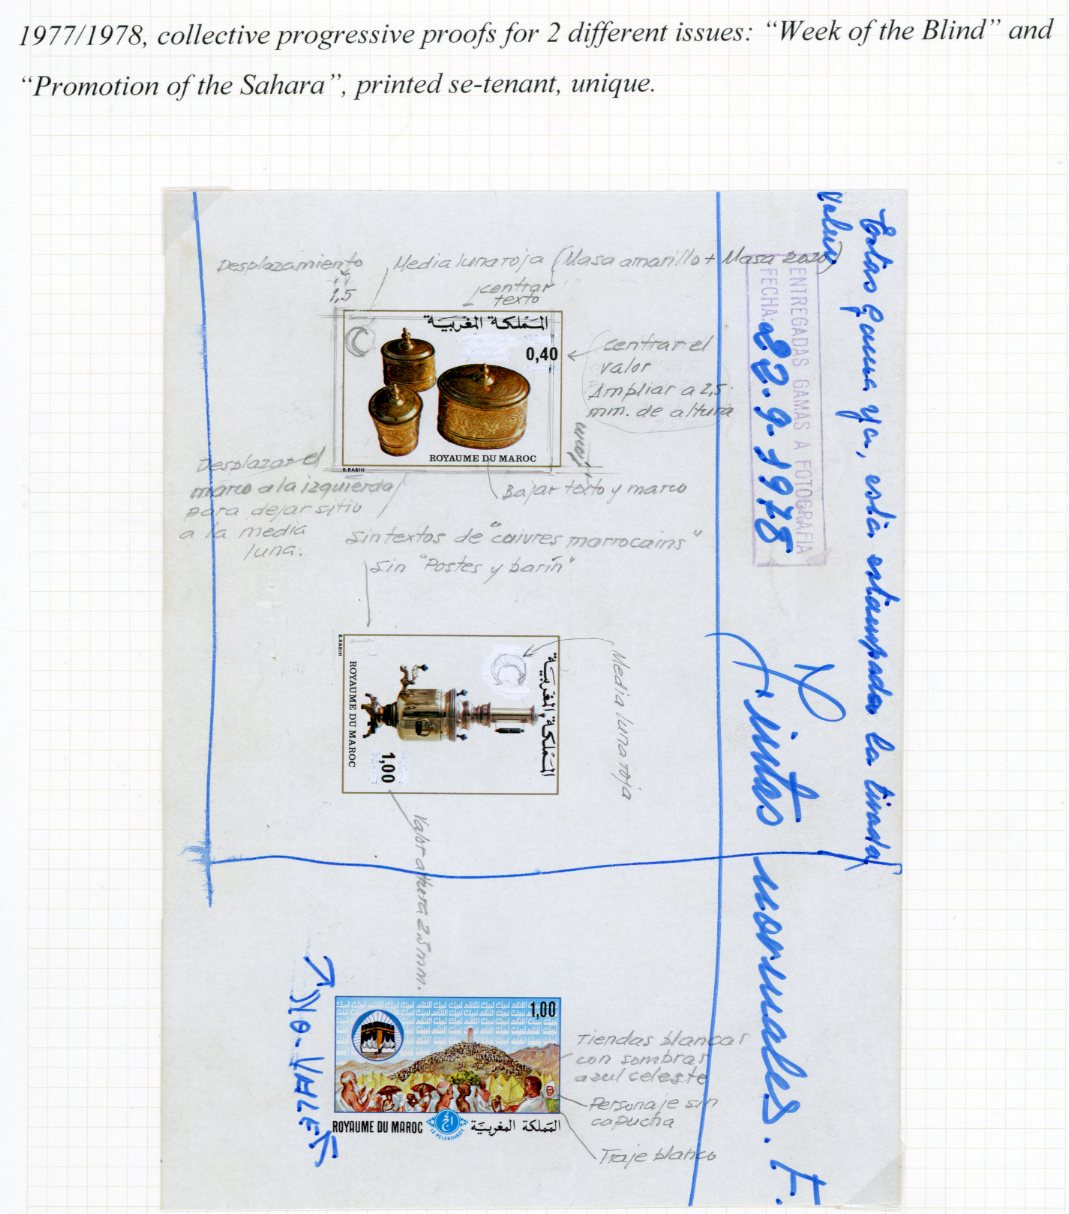 1977/1978, collective progressive proofs for 2 different issues: “Week of the Blind” and
“Promotion of the Sahara”, printed se-tenant, unique.
Desplazamiento
1,5
Media luna roja (Masa amarillo + Masa 2020)
centrar
texto
المملكة المغربية
0,40
centrar el
valor
Ampliar a 2,5
mm. de altura
ROYAUME DU MAROC
R.RABIH
Desplazar el
marco a la izquierda
para dejar sitio
a la media
luna.
Bajar texto y marco
Sin textos de "cuivres marrocains"
Sin "Postes y barín"
R.RABIH
ROYAUME DU MAROC
1,00
المملكة المغربية
Media luna roja
Valor altura 2.5 mm.
NO-VALE
1,00
ROYAUME DU MAROC
المملكة المغربية
الحج
LE PELERINAGE
Tiendas blancas
con sombras
azul celeste
Personaje sin
capucha
Traje blanco
Estas Gama ya, está estampada la tirada
Valen
ENTREGADAS GAMAS A FOTOGRAFIA
FECHA: 22-9-1978
Tintas normales. F.